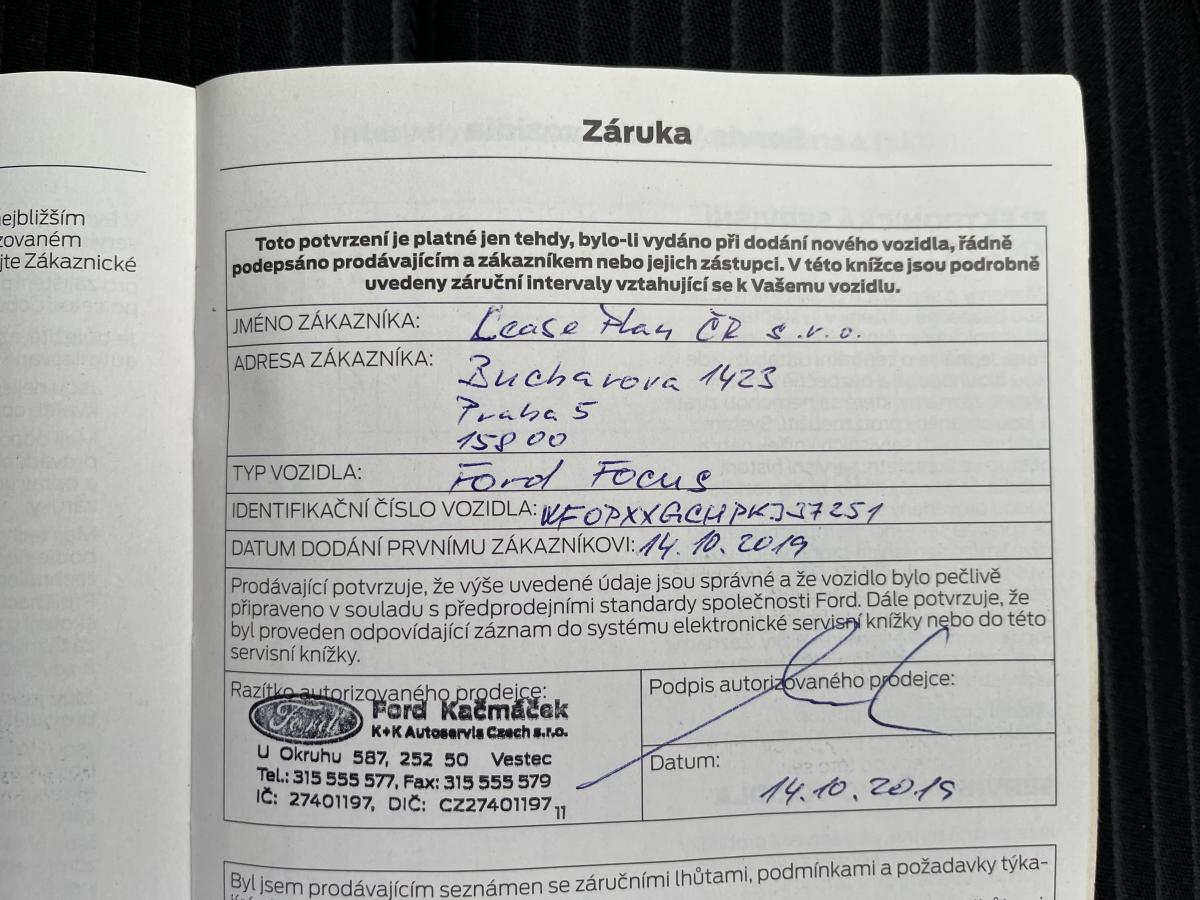 nejbližším
zovaném
jte Zákaznické
Záruka
Toto potvrzení je platné jen tehdy, bylo-li vydáno při dodání nového vozidla, řádně
podepsáno prodávajícím a zákazníkem nebo jejich zástupci. V této knížce jsou podrobně
uvedeny záruční intervaly vztahující se k Vašemu vozidlu.
JMÉNO ZÁKAZNÍKA: Lease Plan ČR s.r.o.
ADRESA ZÁKAZNÍKA: Bucharova 1423
Praha 5
158 00
TYP VOZIDLA: Ford Focus
IDENTIFIKAČNÍ ČÍSLO VOZIDLA: WF0PXXGCHPKJ37251
DATUM DODÁNÍ PRVNÍMU ZÁKAZNÍKOVI: 14.10.2019
Prodávající potvrzuje, že výše uvedené údaje jsou správné a že vozidlo bylo pečlivě
připraveno v souladu s předprodejními standardy společnosti Ford. Dále potvrzuje, že
byl proveden odpovídající záznam do systému elektronické servisní knížky nebo do této
servisní knížky.
Razítko autorizovaného prodejce:
Ford Ford Kačmáček
K+K Autoservis Czech s.r.o.
U Okruhu 587, 252 50 Vestec
Tel.: 315 555 577, Fax: 315 555 579
IČ: 27401197, DIČ: CZ27401197 11
Podpis autorizovaného prodejce:
Datum:
14.10.2019
Byl jsem prodávajícím seznámen se záručními lhůtami, podmínkami a požadavky týka-